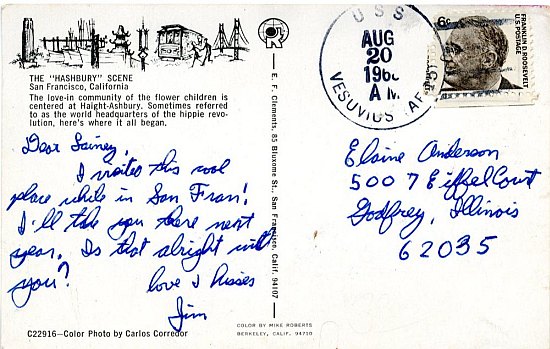 THE "HASHBURY" SCENE
San Francisco, California
The love-in community of the flower children is
centered at Haight-Ashbury. Sometimes referred
to as the world headquarters of the hippie revo-
lution, here's where it all began.
Dear Lainey,
I visited this cool
place while in San Fran!
I'll take you there next
year. Is that alright with
you?
love & kisses
Jim
C22916—Color Photo by Carlos Corredor
E. F. Clements, 85 Bluxome St., San Francisco, Calif. 94107
COLOR BY MIKE ROBERTS
BERKELEY, CALIF. 94710
USS
AUG
20
A M
VESUVIUS
6c
FRANKLIN D. ROOSEVELT
U.S. POSTAGE
Elaine Anderson
5007 Eiffel Court
Godfrey, Illinois
62035